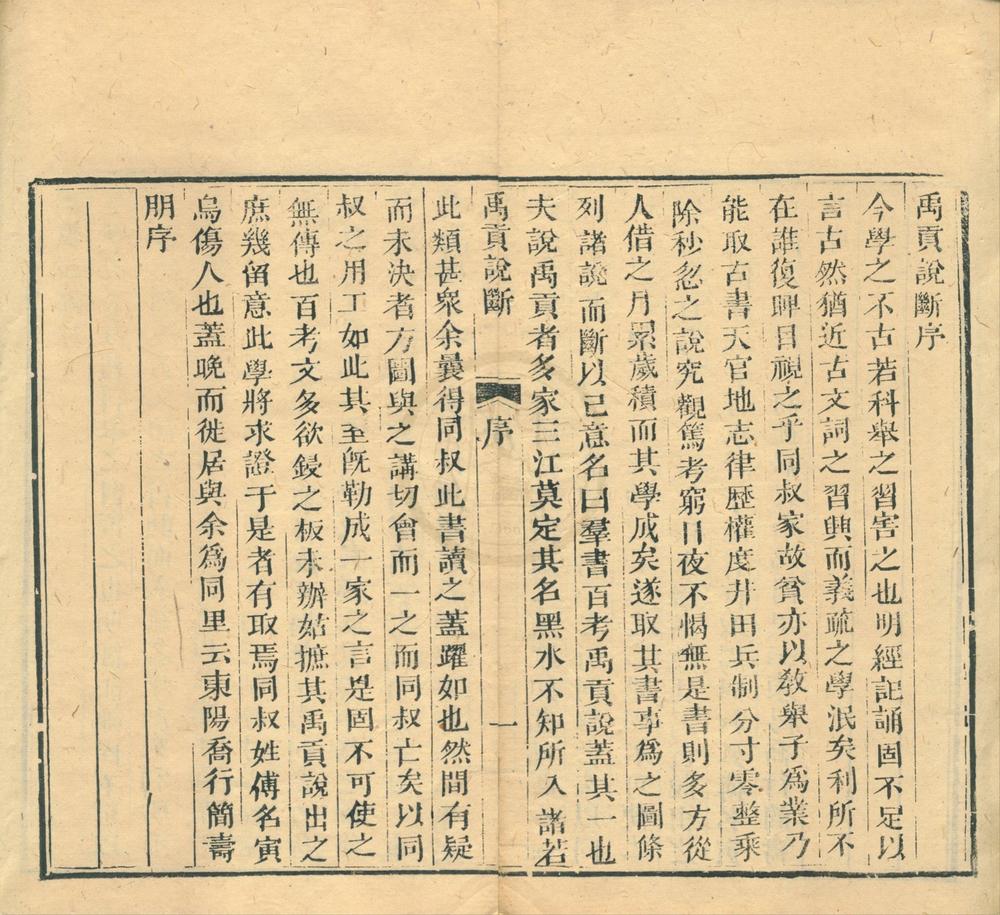 禹貢說斷序
今學之不古若科舉之習害之也明經記誦固不足以
言古然猶近古文詞之習興而義疏之學泯矣利所不
在誰復睥目視之乎同叔家故貧亦以敎舉子爲業乃
能取古書天官地志律歷權度井田兵制分寸零整乘
除秒忽之說究觀篤考窮日夜不愒無是書則多方從
人借之月累歲積而其學成矣遂取其書事爲之圖條
列諸說而斷以己意名曰羣書百考禹貢說蓋其一也
夫說禹貢者多家三江莫定其名黑水不知所入諸若
禹貢說斷
序
一
此類甚衆余曩得同叔此書讀之蓋躍如也然間有疑
而未決者方圖與之講切會而一之而同叔亡矣以同
叔之用工如此其至旣勒成一家之言是固不可使之
無傳也百考文多欲鋟之板未辦姑摭其禹貢說出之
庶幾留意此學將求證于是者有取焉同叔姓傅名寅
烏傷人也蓋晚而徙居與余爲同里云東陽喬行簡壽
朋序